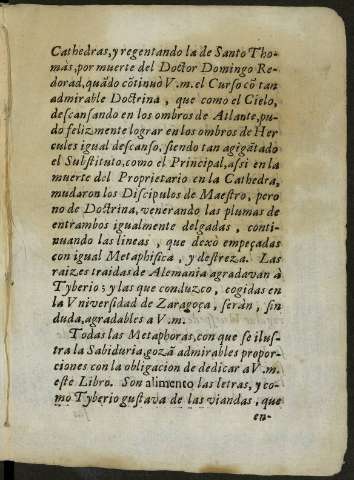 Cathedras, y regentando la de Santo Tho-
màs, por muerte del Doctor Domingo Re-
dorad, quãdo cõtinuò V.m. el Curſo cõ tan
admirable Doctrina, que como el Cielo,
deſcanſando en los ombros de Atlante, pu-
do felizmente lograr en los ombros de Her
cules igual deſcanſo, ſiendo tan agigãtado
el Subſtituto, como el Principal, aſsi en la
muerte del Proprietario en la Cathedra,
mudaron los Diſcipulos de Maeſtro, pero
no de Doctrina, venerando las plumas de
entrambos igualmente delgadas, conti-
nuando las lineas, que dexò empeçadas
con igual Metaphiſica, y deſtreza. Las
raizes traidas de Alemania agradavan à
Tyberio; y las que conduzco, cogidas en
la Vniverſidad de Zaragoça, ſeràn, ſin
duda, agradables a V.m.
Todas las Metaphoras, con que ſe iluſ-
tra la Sabiduria, gozã admirables propor-
ciones con la obligacion de dedicar a V.m.
eſte Libro. Son alimento las letras, y co-
mo Tyberio guſtava de las viandas, que
en-